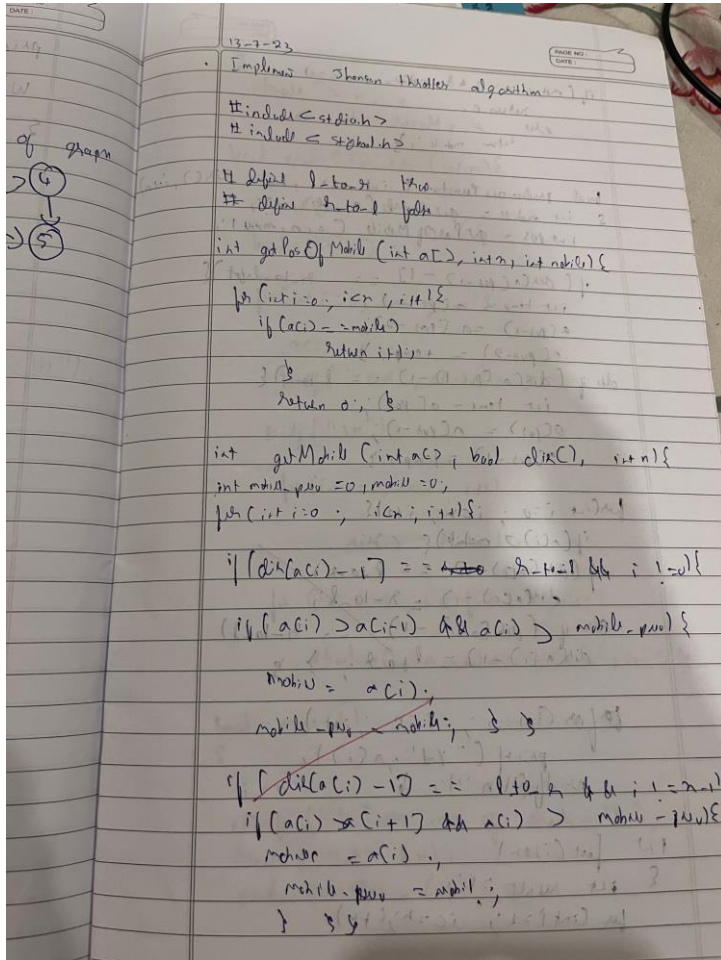 DATE :
PAGE NO :
DATE :
13-7-23
Implement Jhonson throtter algorithm
#include <stdio.h>
#include <stdbool.h>
of graph
4
5
# define l-to-r true
# define r-to-l false
int getPosOfMobile (int a[], int n, int mobile) {
for (int i=0; i<n; i++) {
if (a[i] == mobile)
return i+1;
}
return 0; }
int getMobile (int a[], bool dir[], int n) {
int mobile_prev = 0, mobile = 0;
for (int i=0; i<n; i++) {
if [dir[a[i]-1] == r-to-l && i != 0) {
if (a[i] > a[i-1] && a[i] > mobile_prev) {
mobile = a[i];
mobile_prev = mobile; } }
if [dir[a[i]-1] == l-to-r && i != n-1)
if (a[i] > a[i+1] && a[i] > mobile_prev) {
mobile = a[i];
mobile_prev = mobile;
} } }